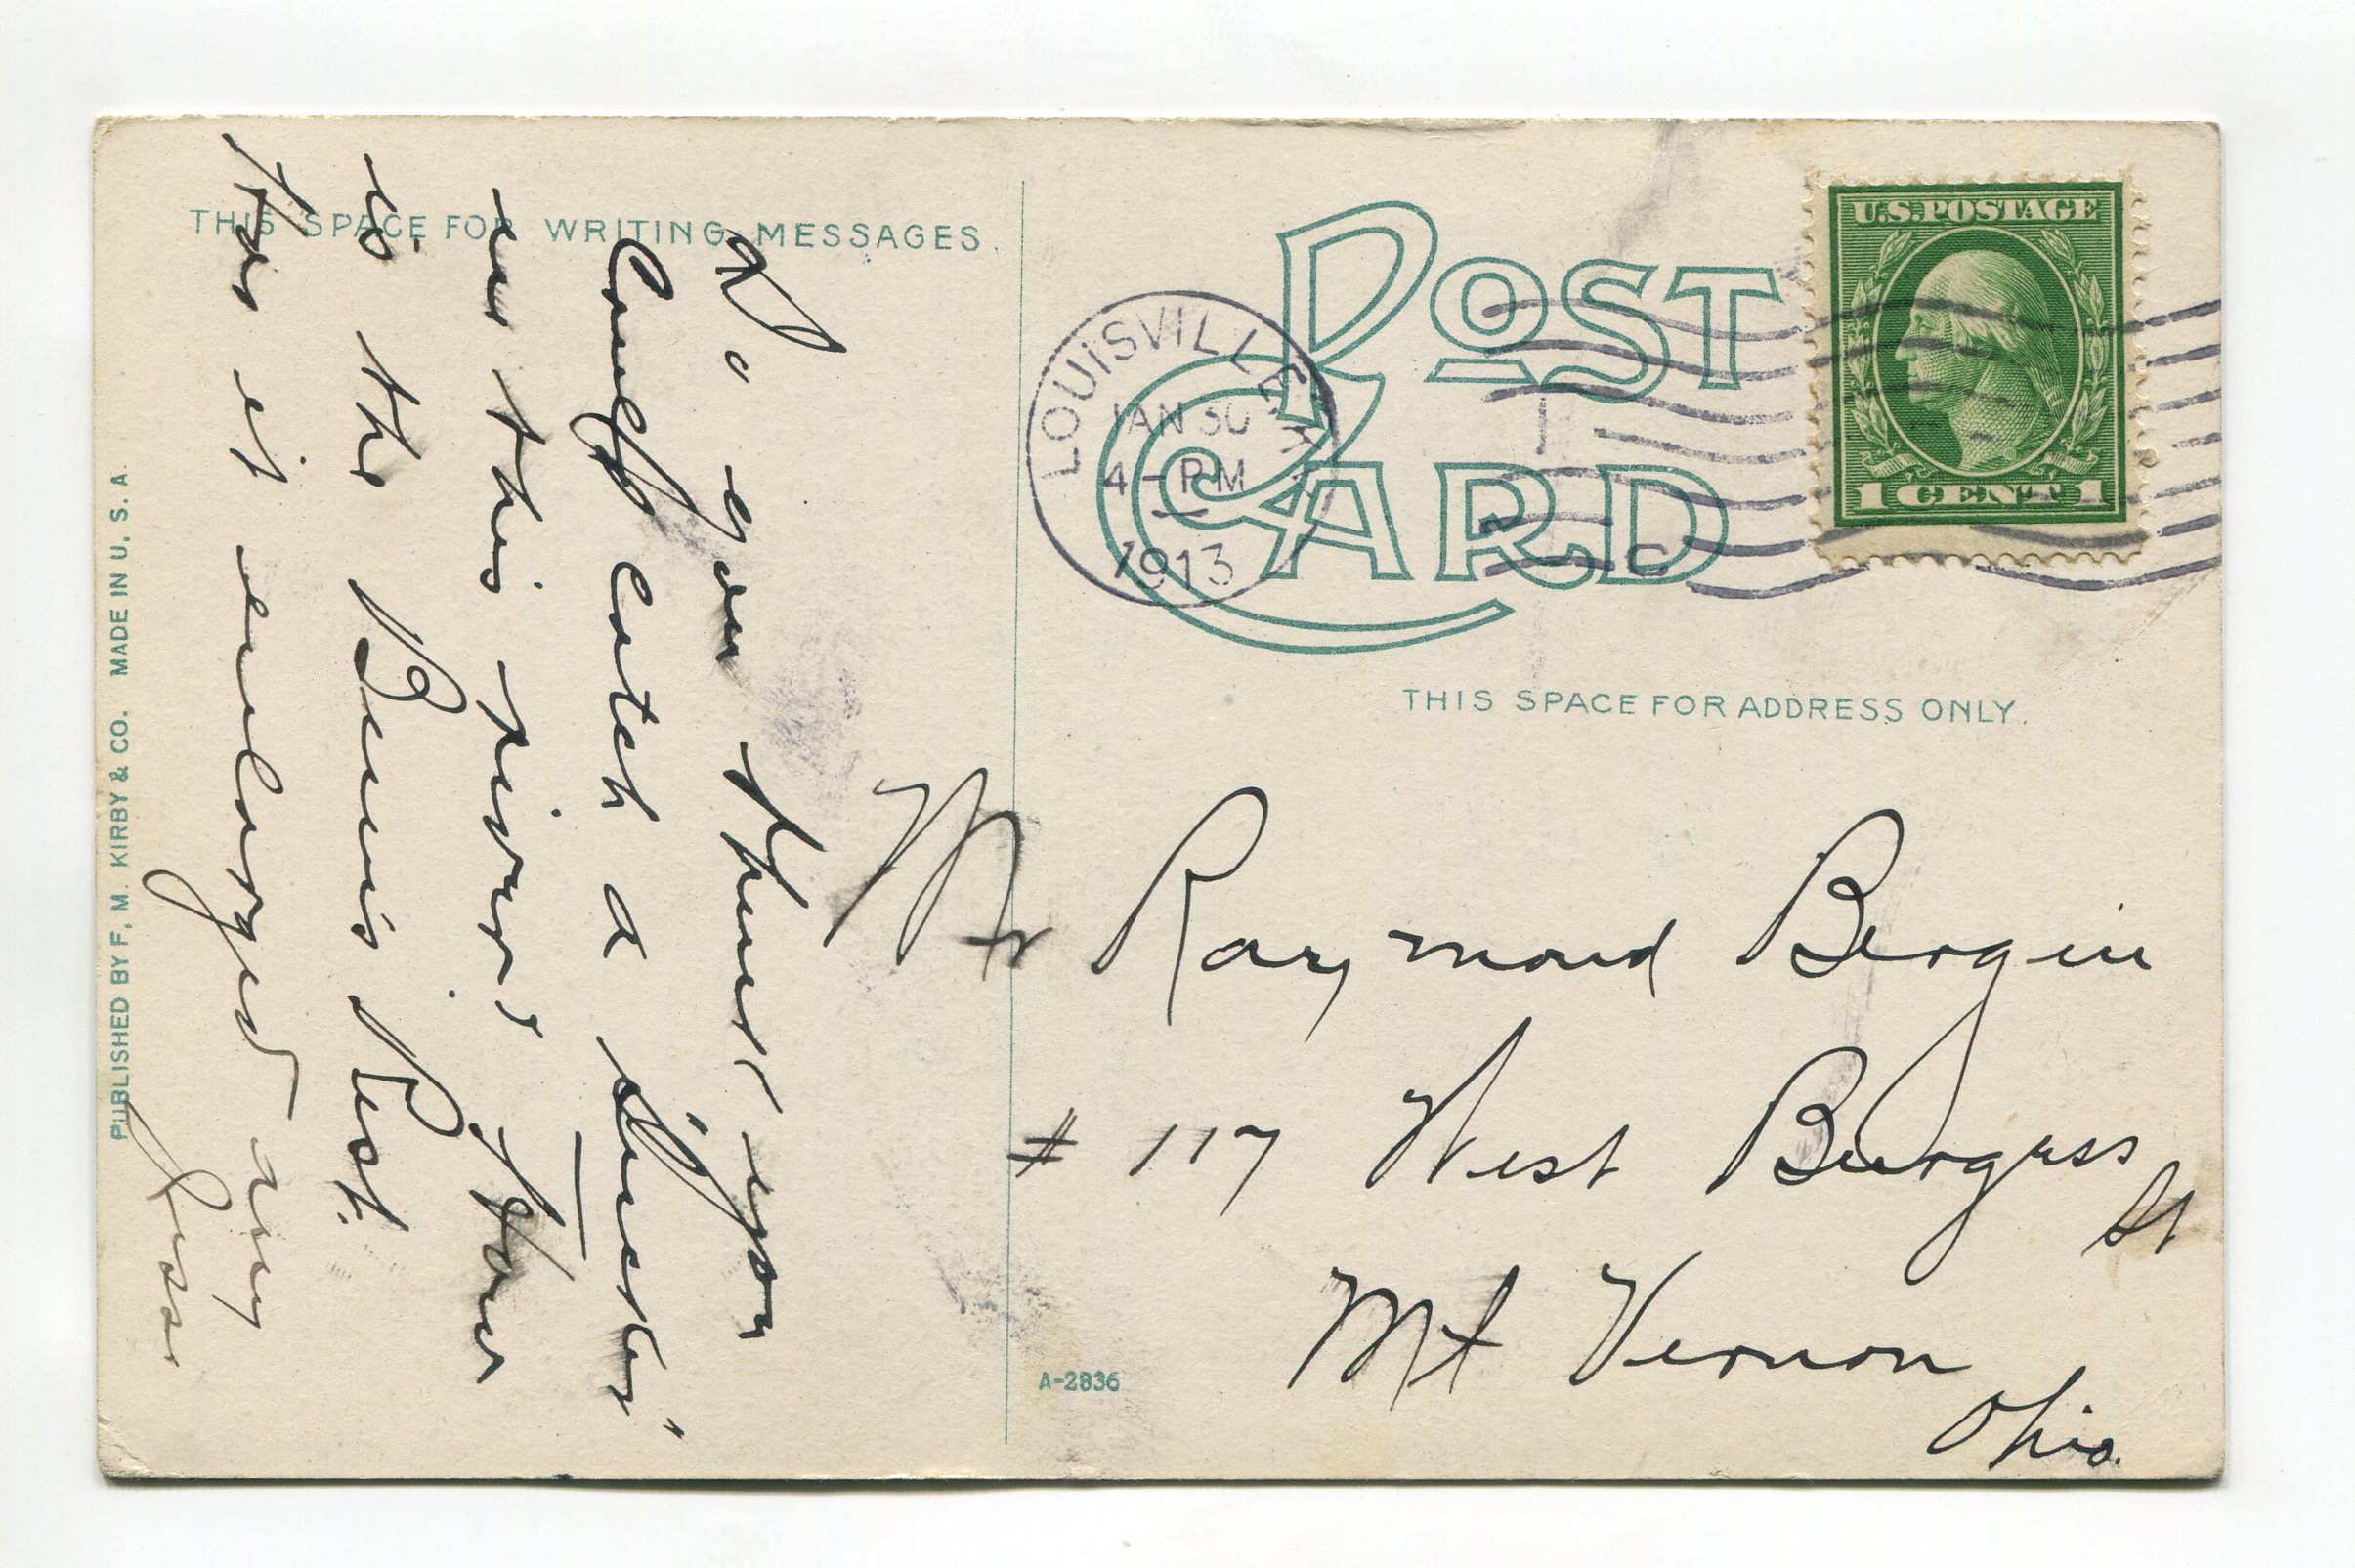 THIS SPACE FOR WRITING MESSAGES.
Do you think you
could catch a "Sucker"
in this river? How
is the Bunis Rest.
Has it enlarged any
Jess
PUBLISHED BY F. M. KIRBY & CO. MADE IN U. S. A.
POST
CARD
LOUISVILLE
JAN 30
4-PM
1913
U.S. POSTAGE
1 CENT 1
THIS SPACE FOR ADDRESS ONLY.
Mr Raymond Bergin
# 117 West Burgess
St
Mt Vernon
Ohio.
A-2836